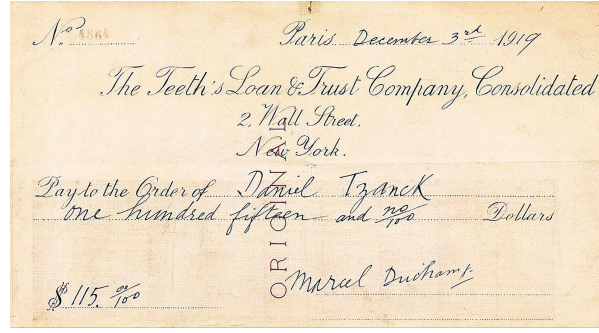 No. 4864 Paris December 3rd 1919
The Teeth's Loan & Trust Company, Consolidated
2, Wall Street.
New York.
Pay to the Order of Daniel Tzanck
one hundred fifteen and no/100 Dollars
ORIGINAL
$ 115. 00/100
Marcel Duchamp